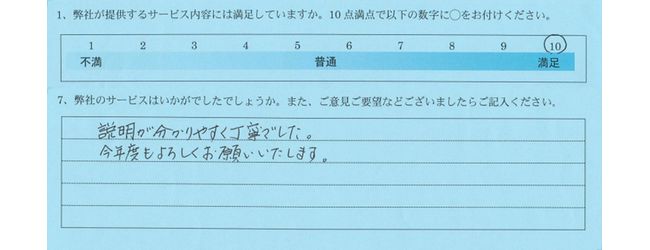 1、弊社が提供するサービス内容には満足していますか。10点満点で以下の数字に○をお付けください。
1 2 3 4 5 6 7 8 9 10
不満 普通 満足
7、弊社のサービスはいかがでしたでしょうか。また、ご意見ご要望などございましたらご記入ください。
説明が分かりやすく丁寧でした。
今年度もよろしくお願いいたします。